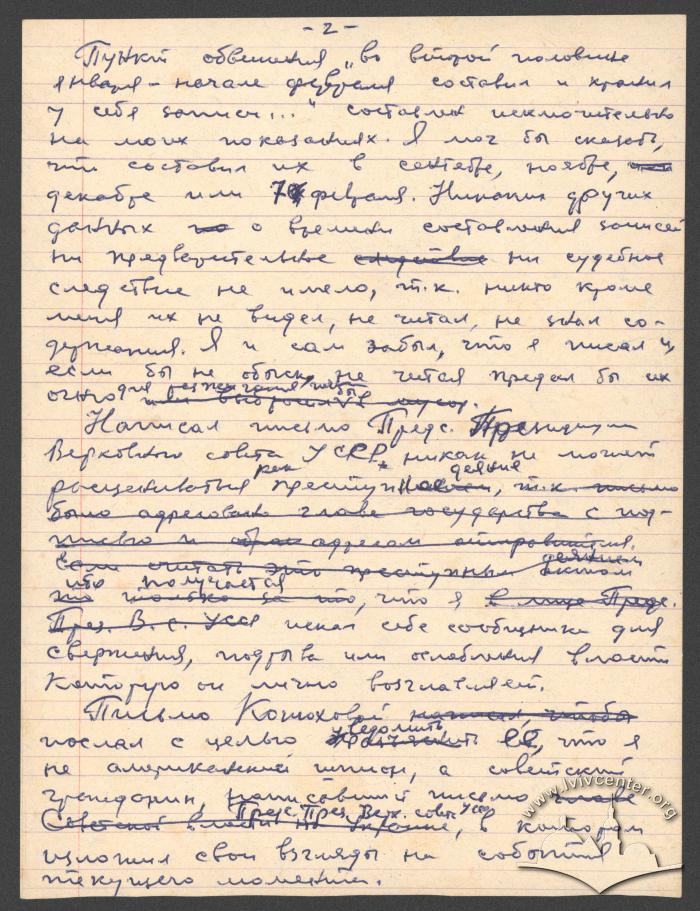 - 2 -
Пункт обвинения "во второй половине
января - начале февраля составил и хранил
у себя записи..." составлен исключительно
на моих показаниях. Я мог бы сказать,
что составил их в сентябре, ноябре,
декабре или 7 февраля. Никаких других
данных о времени составления записей
ни предварительное следствие ни судебное
следствие не имело, т.к. никто кроме
меня их не видел, не читал, не знал со-
держания. Я и сам забыл, что я писал и,
если бы не обыск, не читая предал бы их
огню для разжигания
или выбросил бы в мусор.
Написал письмо Предс. Президиума
Верховного совета УССР, никак не может
рас­цениваться как преступное деяние, т.к. письмо
было адресовано главе государства с под-
писью и адресом отправителя.
Если считать это преступным деянием
ибо получается
это только за то, что я в лице Предс.
През. В. С. УССР искал себе сообщника для
свержения, подрыва или ослабления власти
которую он лично возглавляет.
Письмо Конюховой написал, чтобы
послал с целью уведомить ее, что я
не американский шпион, а советский
гражданин, написавший письмо главе
Предс. През. Верх. совета УССР
Советской власти на Украине, в котором
изложил свои взгляды на события
текущего момента.
www.lvivcenter.org